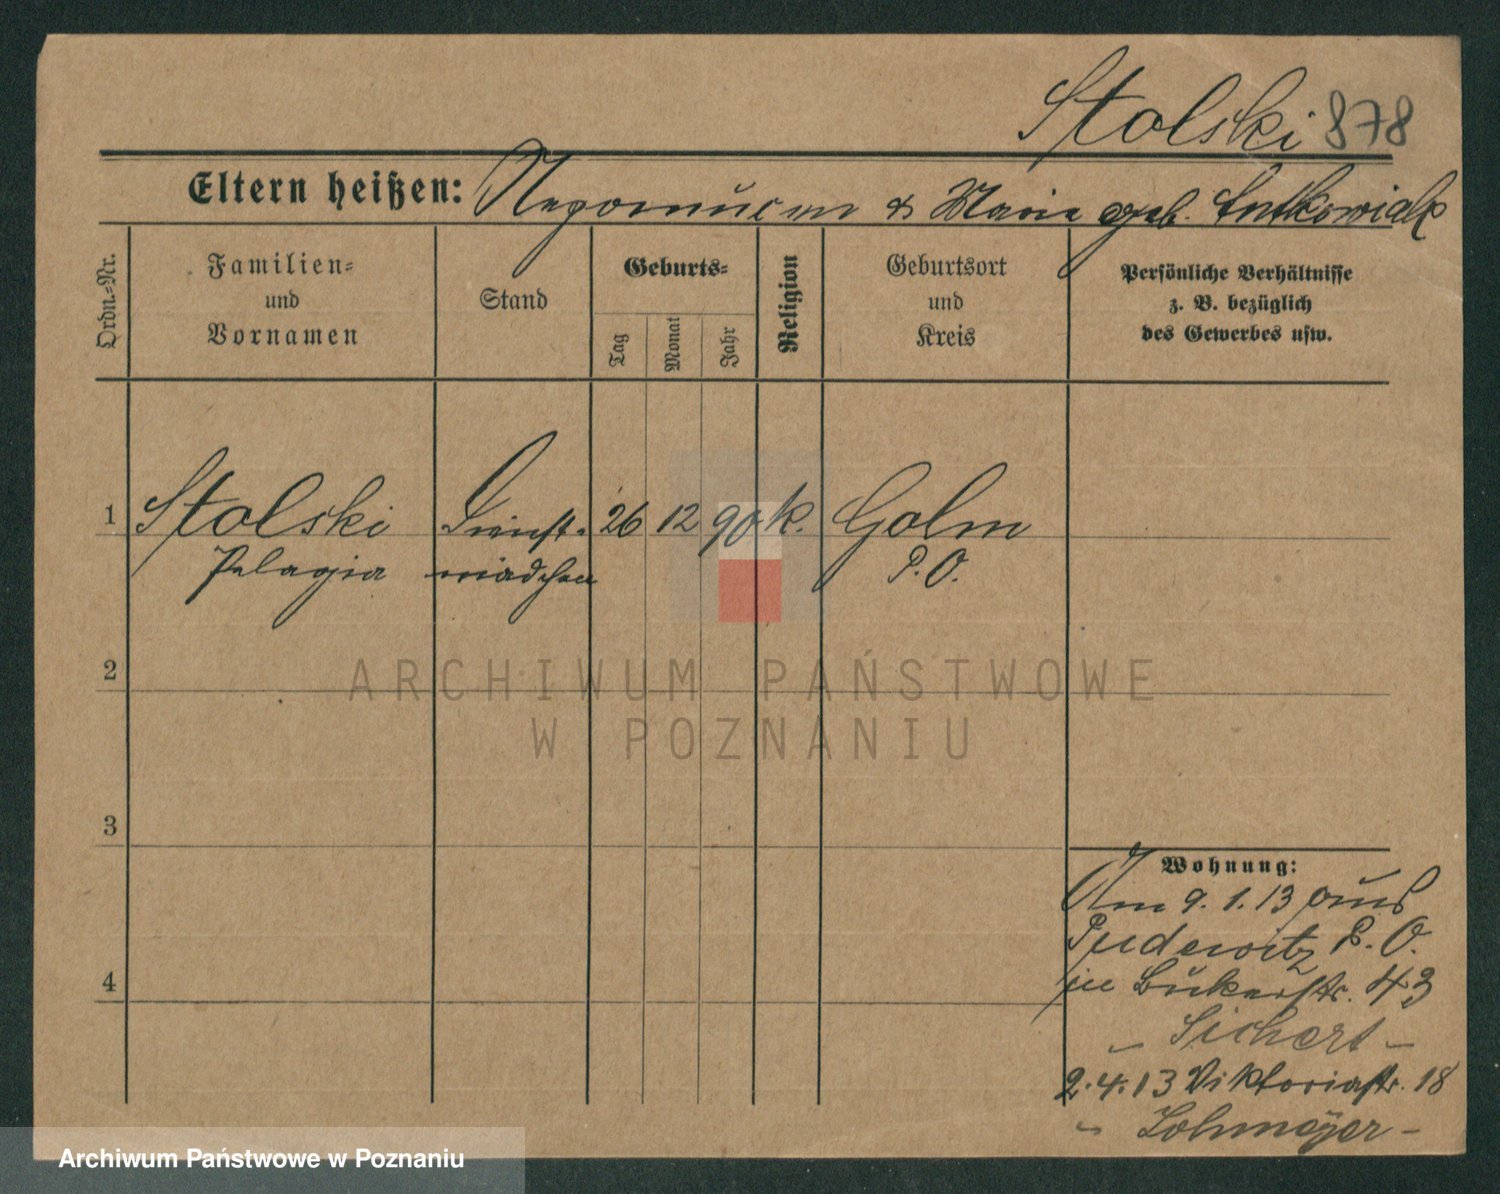 Stolski 878
Eltern heißen: Nepomucen & Marie geb. Antkowiak
Ordn.-Nr.
Familien-
und
Vornamen
Stand
Geburts-
Tag
Monat
Jahr
Religion
Geburtsort
und
Kreis
Persönliche Verhältnisse
z. B. bezüglich
des Gewerbes usw.
1 Stolski Dienst- 26 12 90 k. Golm
Pelagia mädchen P. O.
2
3
4
Wohnung:
Am 9.1.13 aus
Pudewitz P. O.
in Bukerstr. 43
- Sichert -
2.4.13 Viktoriastr. 18
- Lohmeyer -
ARCHIWUM PAŃSTWOWE
W POZNANIU
Archiwum Państwowe w Poznaniu